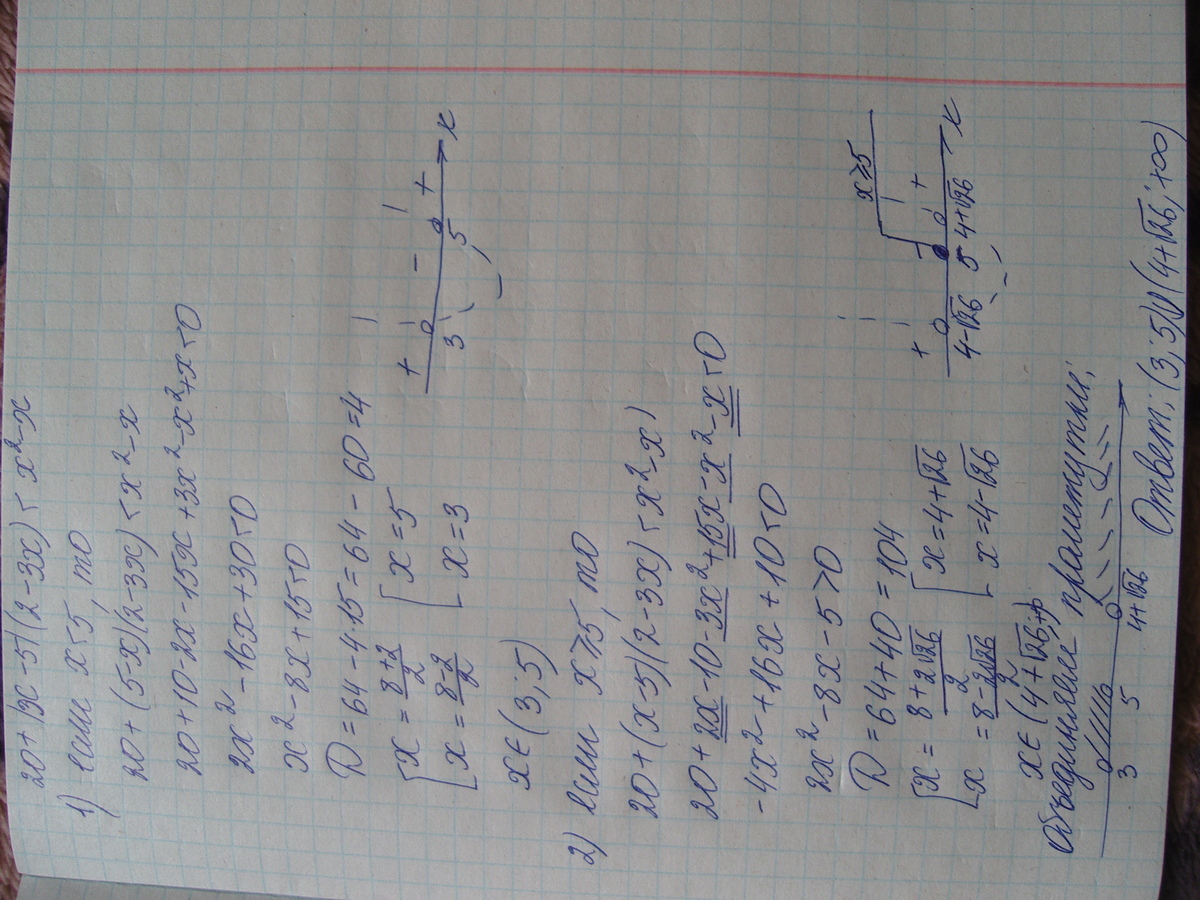 20+|x-5|(2-3x)<x²-x
1) если x<5, то
20+(5-x)(2-3x)<x²-x
20+10-2x-15x+3x²-x²+x<0
2x²-16x+30<0
x²-8x+15<0
D=64-4·15=64-60=4
[x=8+2/2 [x=5
[x=8-2/2 [x=3
+ - +
3 5 x
x∈(3;5)
2) если x≥5, то
20+(x-5)(2-3x)<x²-x)
20+2x-10-3x²+15x-x²-x<0
-4x²+16x+10<0
2x²-8x-5>0
D=64+40=104
[x=8+2√26/2 [x=4+√26
[x=8-2√26/2 [x=4-√26
x≥5
+ - +
4-√26 5 4+√26 x
x∈(4+√26;+∞)
Объединяем промежутки:
3 5 4+√26
Ответ: (3;5)U(4+√26;+∞)